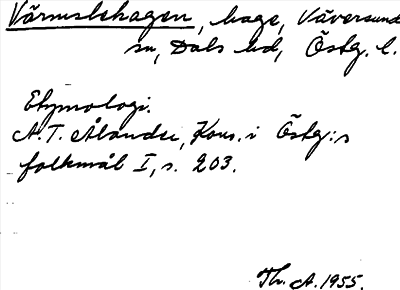 Värmslehagen, hage, Väversund
sn, Dals hd, Östg. l.
Etymologi.
A. T. Ålander, Kons. i Östg:s
folkmål I, s. 203.
Th. A. 1955.